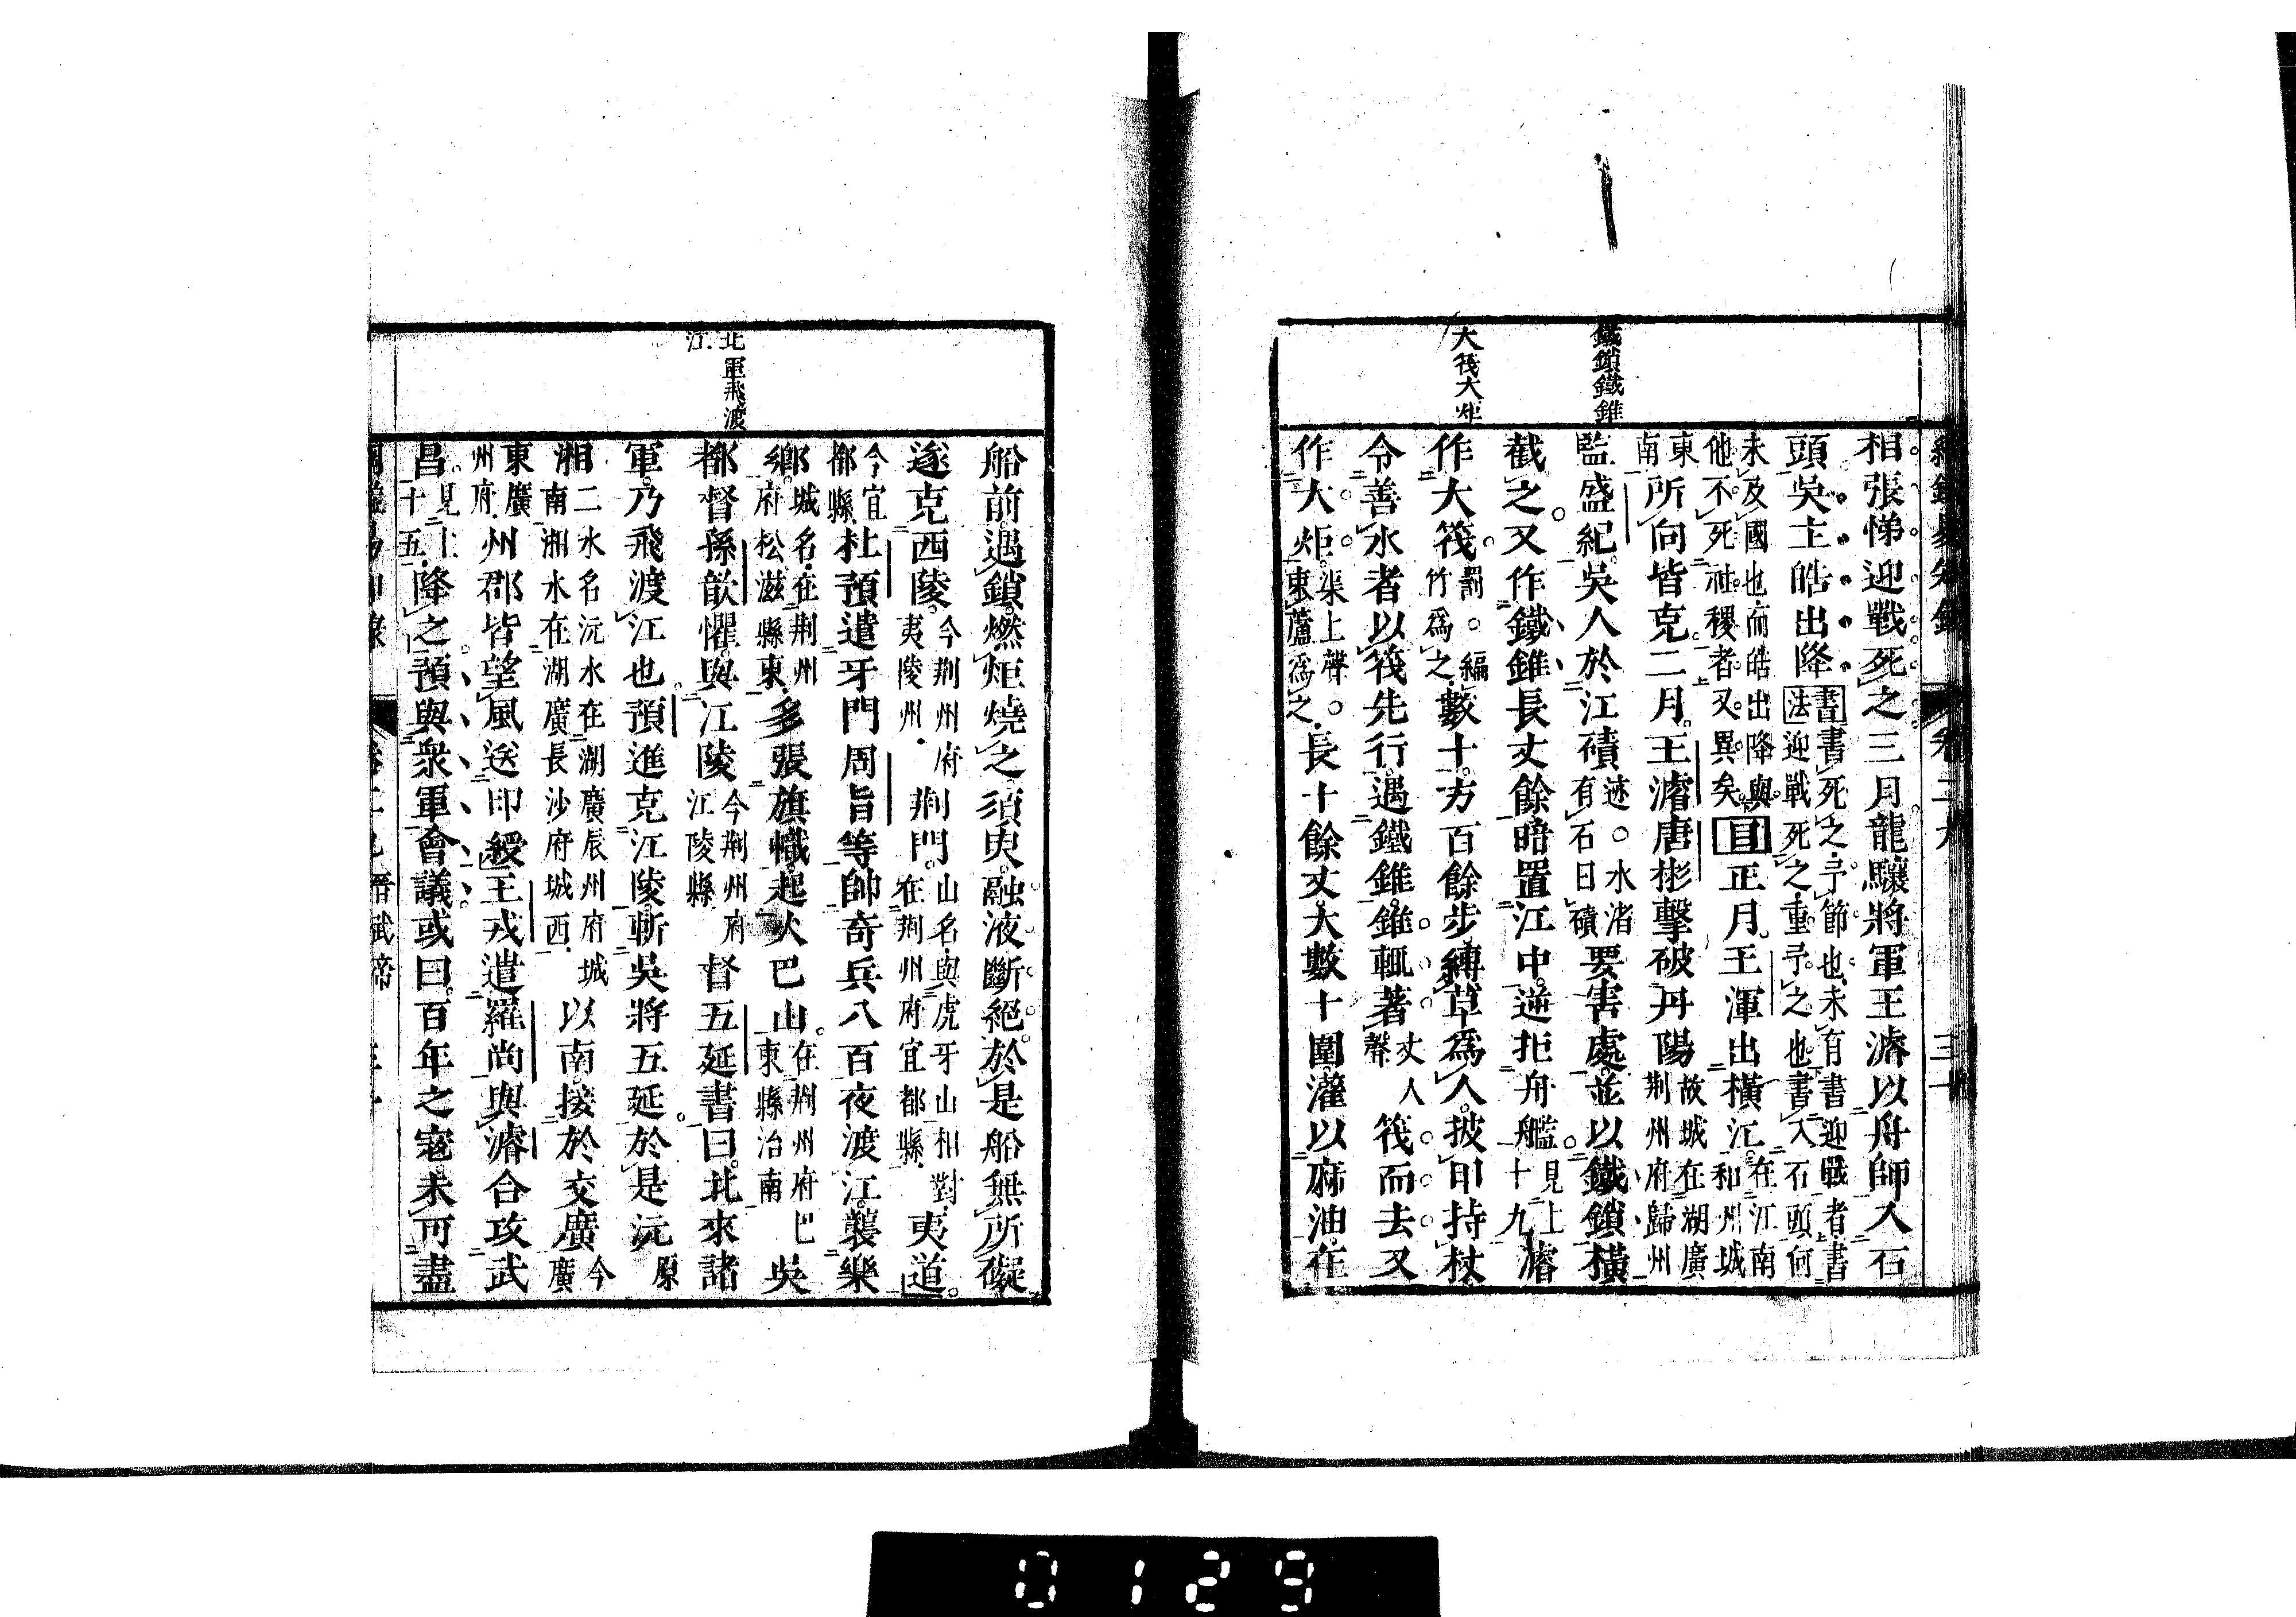 鐵鎖鐵錐
大筏大炬
相張悌迎戰死之三月龍驤將軍王濬以舟師入石
頭吳主皓出降書法書死之予節也未有書迎戰者書迎戰死之重予之也書入石頭何
未及國也而皓出降與他不死社稷者又異矣目正月王渾出橫江在江南和州城
東南所向皆克二月王濬唐彬擊破丹陽故城在湖廣荆州府歸州
監盛紀吳人於江磧迹○水渚有石曰磧要害處並以鐵鎖橫
截之又作鐵錐長丈餘暗置江中逆拒舟艦見上十九濬
作大筏罰○編竹爲之數十方百餘步縛草爲人披甲持杖
令善水者以筏先行遇鐵錐錐輒著丈人聲筏而去又
作大炬渠上聲○束蘆爲之長十餘丈大數十圍灌以麻油在
北軍飛渡江
船前遇鎖燃炬燒之須臾融液斷絕於是船無所礙
遂克西陵今荆州府夷陵州荆門山名與虎牙山相對在荆州府宜都縣夷道
今宜都縣杜預遣牙門周旨等帥奇兵八百夜渡江襲樂
鄉城名在荆州府松滋縣東多張旗幟起火巴山在荆州府巴東縣治南吳
都督孫歆懼與江陵今荆州府江陵縣督五延書曰北來諸
軍乃飛渡江也預進克江陵斬吳將五延於是沅原
湘二水名沅水在湖廣辰州府城南湘水在湖廣長沙府城西以南接於交廣今廣
東廣州府州郡皆望風送印綬王戎遣羅尚與濬合攻武
昌見上十五降之預與衆軍會議或曰百年之寇未可盡